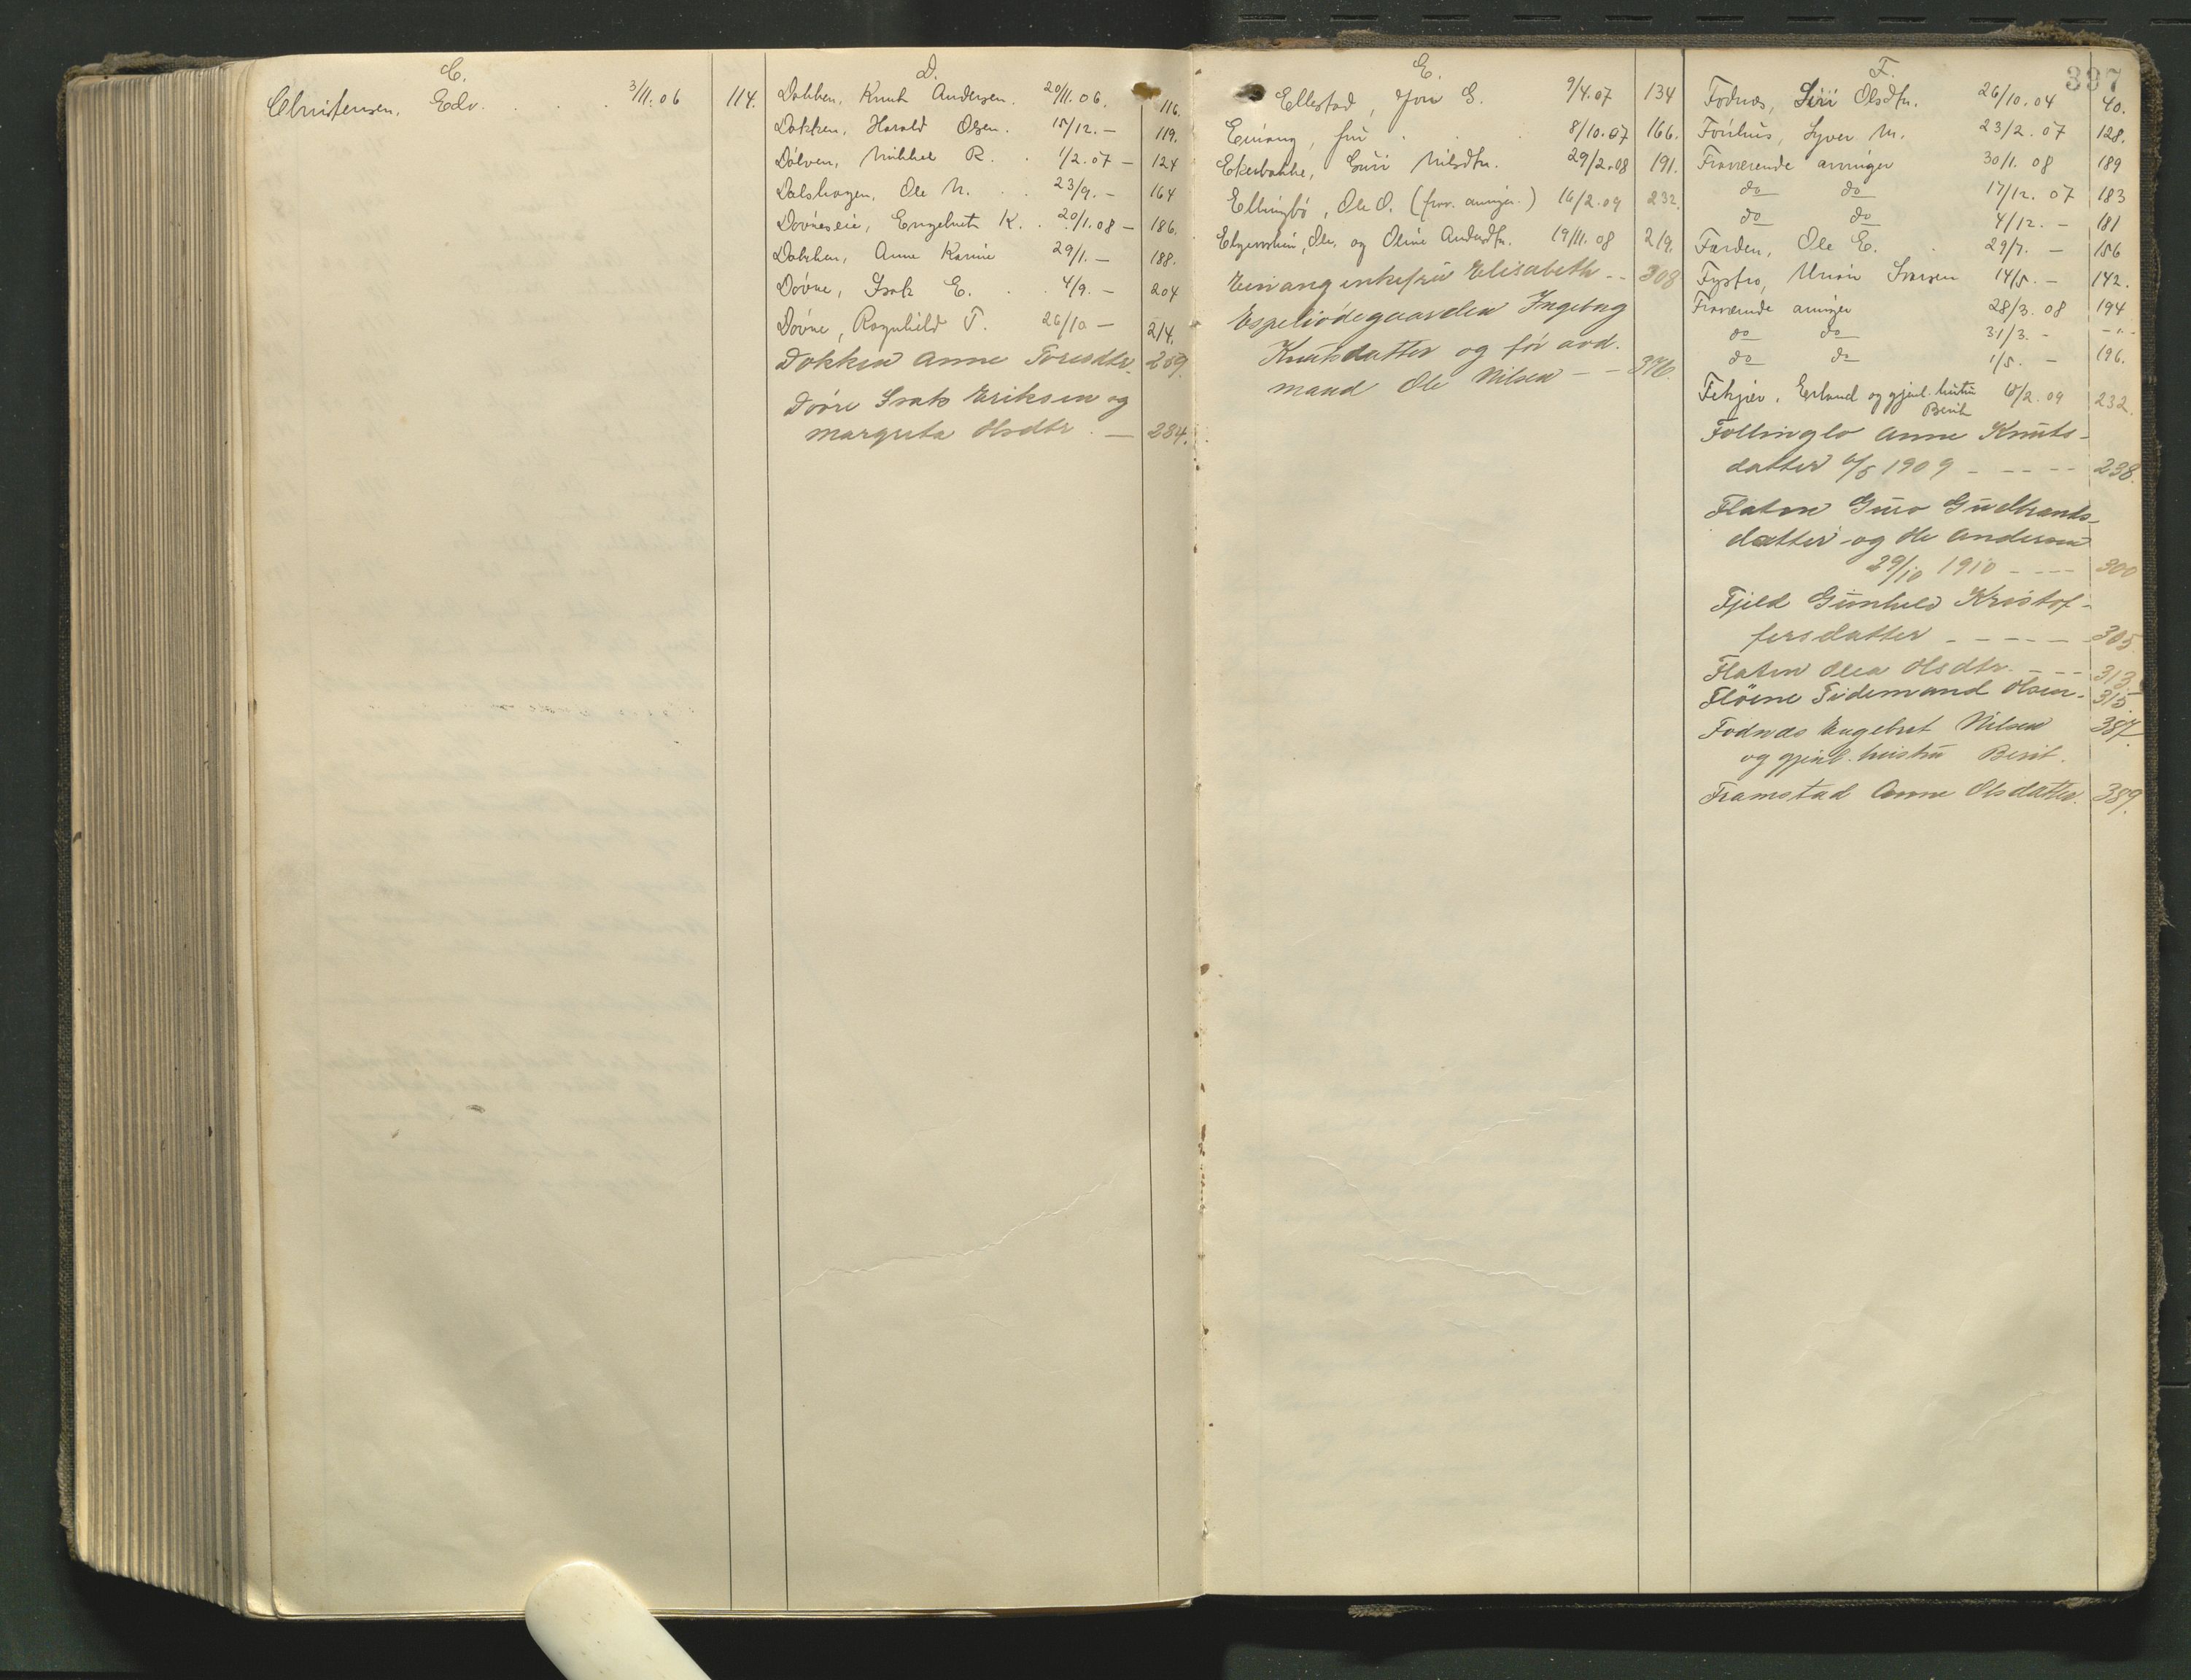 C.
Christensen, Edv. . . . . 3/11. 06 114.
D.
Dokken, Knut Andersen. 20/11. 06. 116.
Dokken, Harald Olsen. 15/12. — 119.
Dölven, Mikkel R. . 1/2. 07 — 124
Dalshagen, Ole N. . . 23/9. — 164
Dövreseie, Engebret K. . 20/1. 08 — 186.
Dokken, Anne Karine 29/1. — 188.
Dövre, Isak E. . . 4/9. — 204
Dövre, Ragnhild T. 26/10 — 214.
Dokken Anne Toresdtr. 259.
Dövre Isak Eriksen og
Margreta Olsdtr. — 284.
E.
Ellestad, Jon G. 9/4. 07 134
Einang, fru . . . . 8/10. 07 166.
Ekerbakke, Guri Nilsdtr. 29/2. 08 191.
Ellingbö, Ole O. (frav. arvinger.) 16/2. 09 232.
Elgenstein, Ole, og Oline Andersdtr. 19/11. 08 219.
Einang enkefru Elisabeth -- 308
Espeliödegaarden Ingebog
Knutsdatter og för avd.
mand Ole Nilsen -- 376.
F.
397
Fodnæs, Siri Olsdtr. 26/10. 04 40.
Forhus, Syver M. 23/2. 07 128.
Fraværende arvinger 30/1. 08 189
do do 17/12. 07 183
do do 4/12. — 181
Farden, Ole E. . 29/7. — 156
Fystro, Iversen 14/5. — 142.
Fraværende arvinger 28/3. 08 194
do do 31/3. - -"-
do do 1/5. — 196.
Fekjær, Erland og gjenl. hustru Berit /2. 09 232.
Follinglo Anne Knuts-
datter 6/5 1909 - - - - 238.
Flaten Guro Gudbrands-
datter og Ole Andersen
29/10 1910 - - - - 300
Fjeld Gunhild Kristof-
fersdatter - - - - - 305.
Flaten Olea Olsdtr. - - - 313
Flöene Tidemand Olsen - 315.
Fodnæs Engebret Nilsen 387.
og gjenl. hustru Berit.
Framstad Anne Olsdatter. 389.